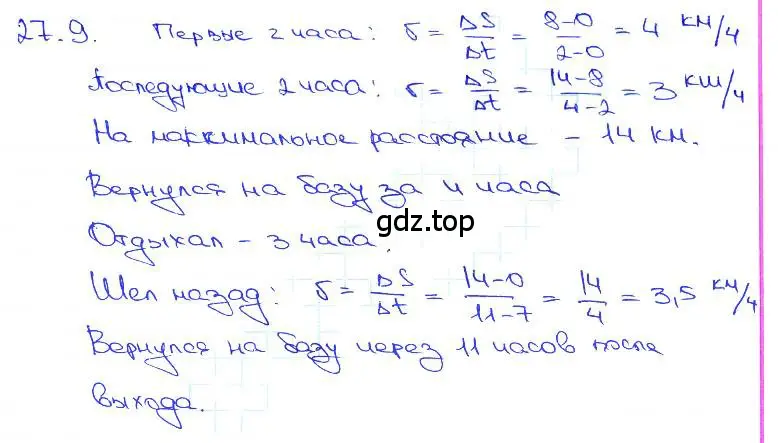 27.9. Первые 2 часа: υ = ΔS/Δt = (8-0)/(2-0) = 4 км/ч
Последующие 2 часа: υ = ΔS/Δt = (14-8)/(4-2) = 3 км/ч
На максимальное расстояние - 14 км.
Вернулся на базу за 4 часа
gdz.top
Отдыхал - 3 часа.
Шел назад: υ = ΔS/Δt = (14-0)/(11-7) = 14/4 = 3,5 км/ч
Вернулся на базу через 11 часов после
выхода.